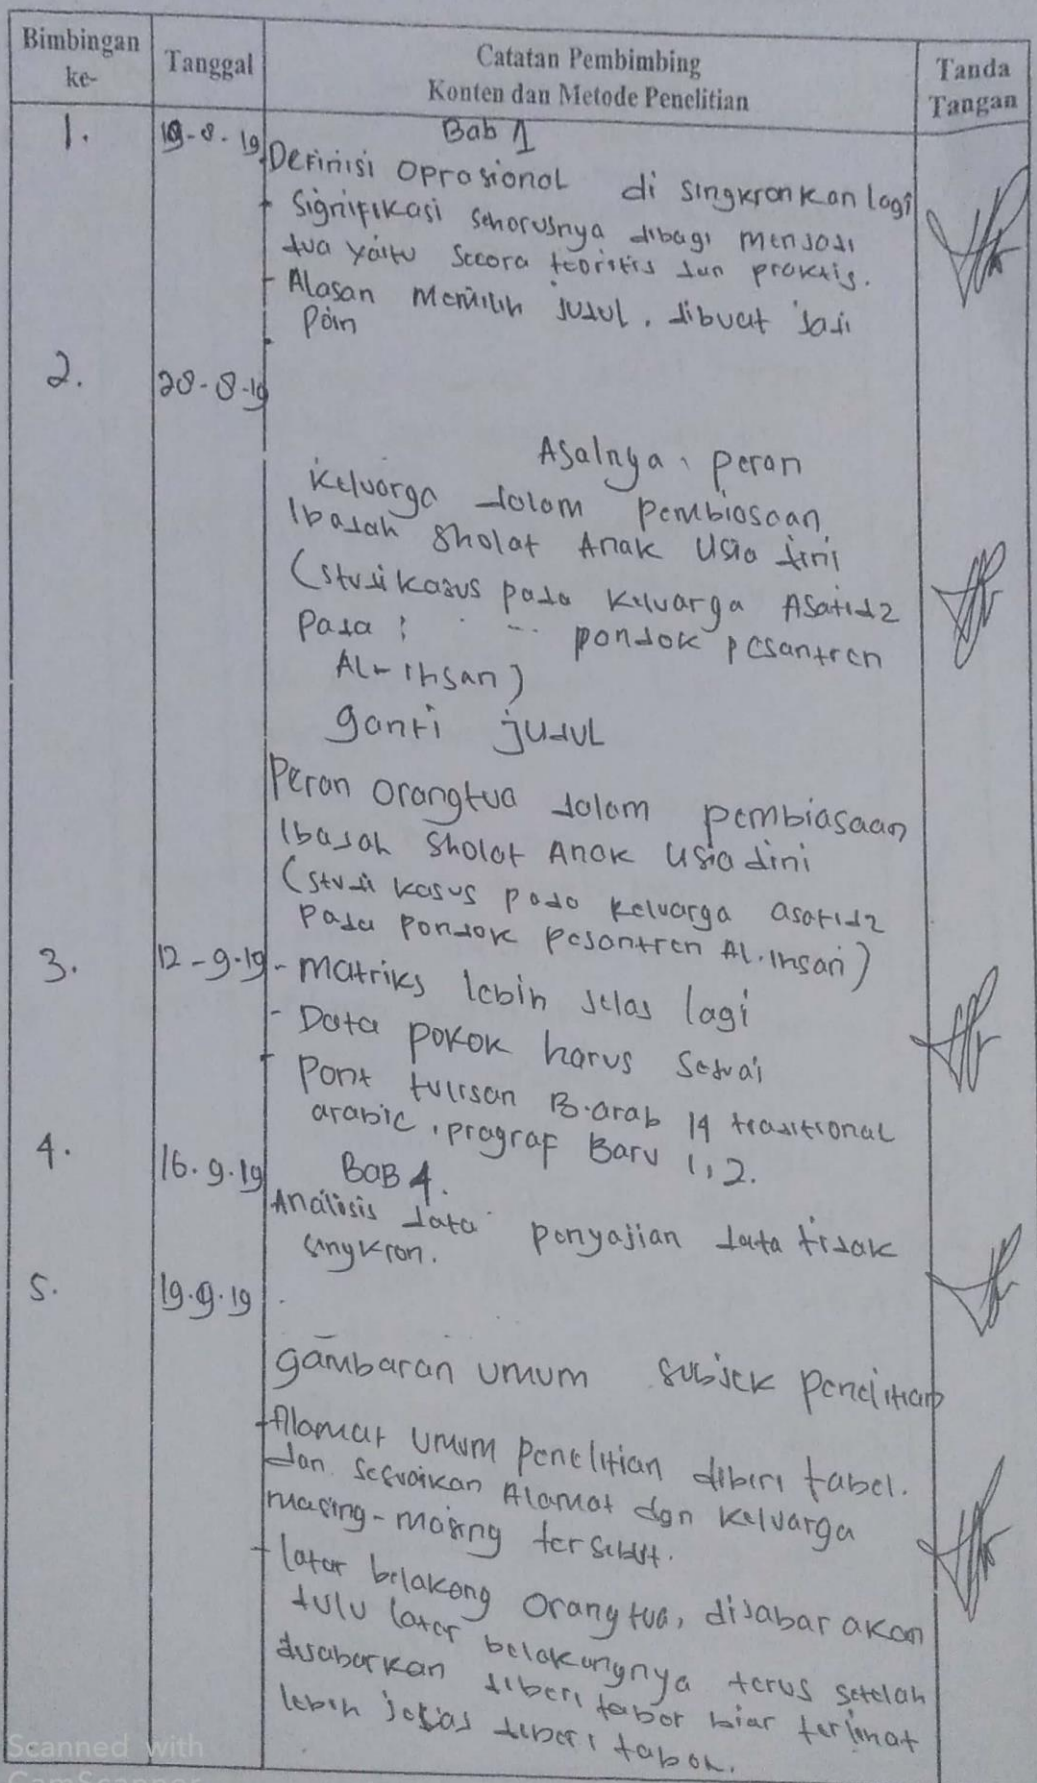 Bimbingan ke-
Tanggal
Catatan Pembimbing
Konten dan Metode Penelitian
Tanda Tangan
1.
19-8-19
Bab 1
Definisi oprasional di singkronkan lagi
- Signifikasi seharusnya dibagi menjadi
dua yaitu secara teoritis dan praktis.
- Alasan memilih judul, dibuat jadi
poin
2.
28-8-19
Asalnya, peran
keluarga dalam pembiasaan
Ibadah sholat Anak Usia dini
(studi kasus pada keluarga Asatidz
Pada : pondok pesantren
Al-Ihsan)
ganti judul
Peran orangtua dalam pembiasaan
Ibadah Sholat Anak Usia dini
(studi kasus pada keluarga asatidz
pada pondok pesantren Al-Ihsan)
3.
12-9-19
- matriks lebih jelas lagi
- Data pokok harus sesuai
- Pont tulisan B.arab 14 traditional
arabic, pragraf Baru 1,2.
4.
16.9.19
BAB 4.
Analisis data penyajian data tidak
singkron.
5.
19.9.19
gambaran umum subjek penelitian
- Alamat umum penelitian diberi tabel.
dan sesuaikan Alamat dgn keluarga
masing-masing tersebut.
- latar belakang orang tua, dijabar akan
dulu latar belakangnya terus setelah
dijabarkan diberi tabel biar terlihat
lebih jelas diberi tabel.
Scanned with
CamScanner